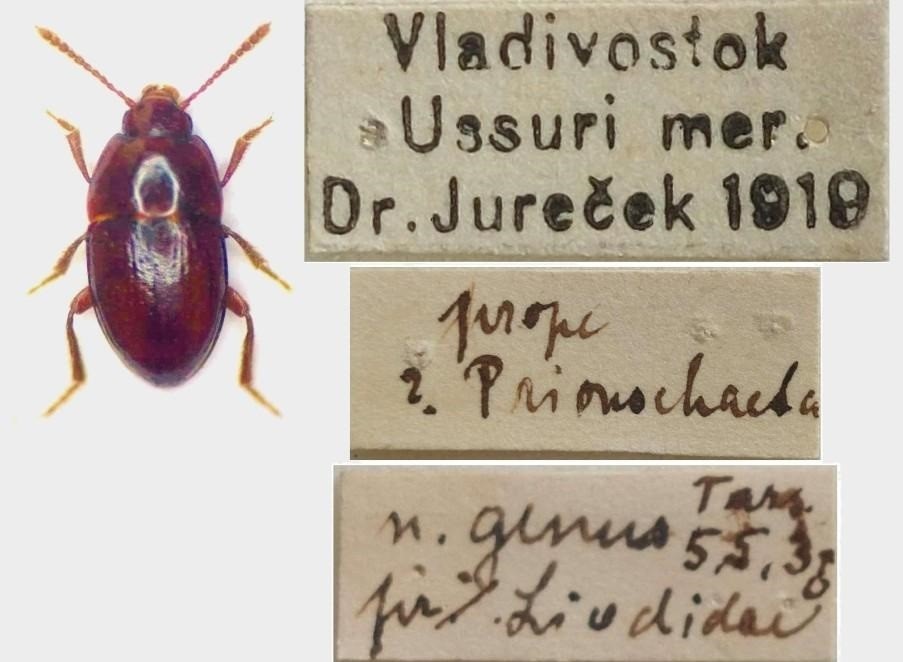 Vladivostok
Ussuri mer.
Dr. Jureček 1919
prope
?. Prionochaeta
n. genus Tars.
5,5,3
Liodidae